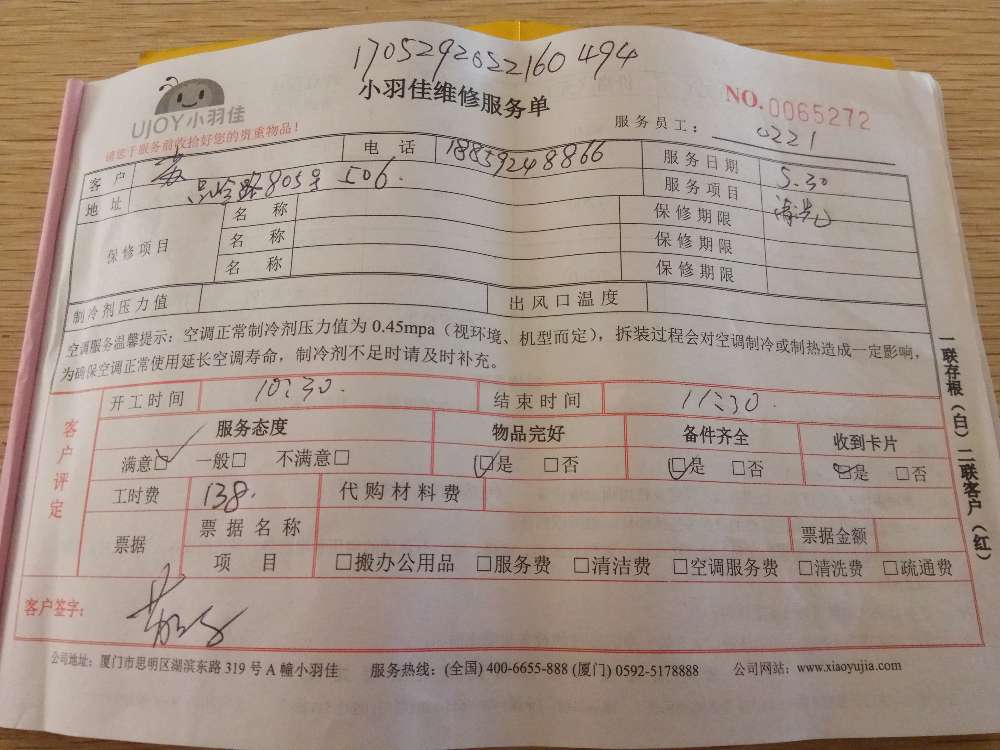 1705292022160494
UJOY小羽佳
小羽佳维修服务单
NO.0065272
请您于服务前收拾好您的贵重物品！
服务员工： 0221
客户 电话 18859248866 服务日期 5.30
地址 805号 506. 服务项目
保修项目 名称 保修期限
名称 保修期限
名称 保修期限
制冷剂压力值 出风口温度
空调服务温馨提示：空调正常制冷剂压力值为 0.45mpa（视环境、机型而定），拆装过程会对空调制冷或制热造成一定影响，
为确保空调正常使用延长空调寿命，制冷剂不足时请及时补充。
开工时间 10:30. 结束时间 11:30.
客户评定
服务态度 物品完好 备件齐全 收到卡片
满意□ 一般□ 不满意□ □是 □否 □是 □否 □是 □否
工时费 138. 代购材料费
票据 票据名称 票据金额
项目 □搬办公用品 □服务费 □清洁费 □空调服务费 □清洗费 □疏通费
客户签字：
一联存根（白）二联客户（红）
公司地址：厦门市思明区湖滨东路 319 号 A 幢小羽佳 服务热线：(全国) 400-6655-888 (厦门) 0592-5178888 公司网站：www.xiaoyujia.com